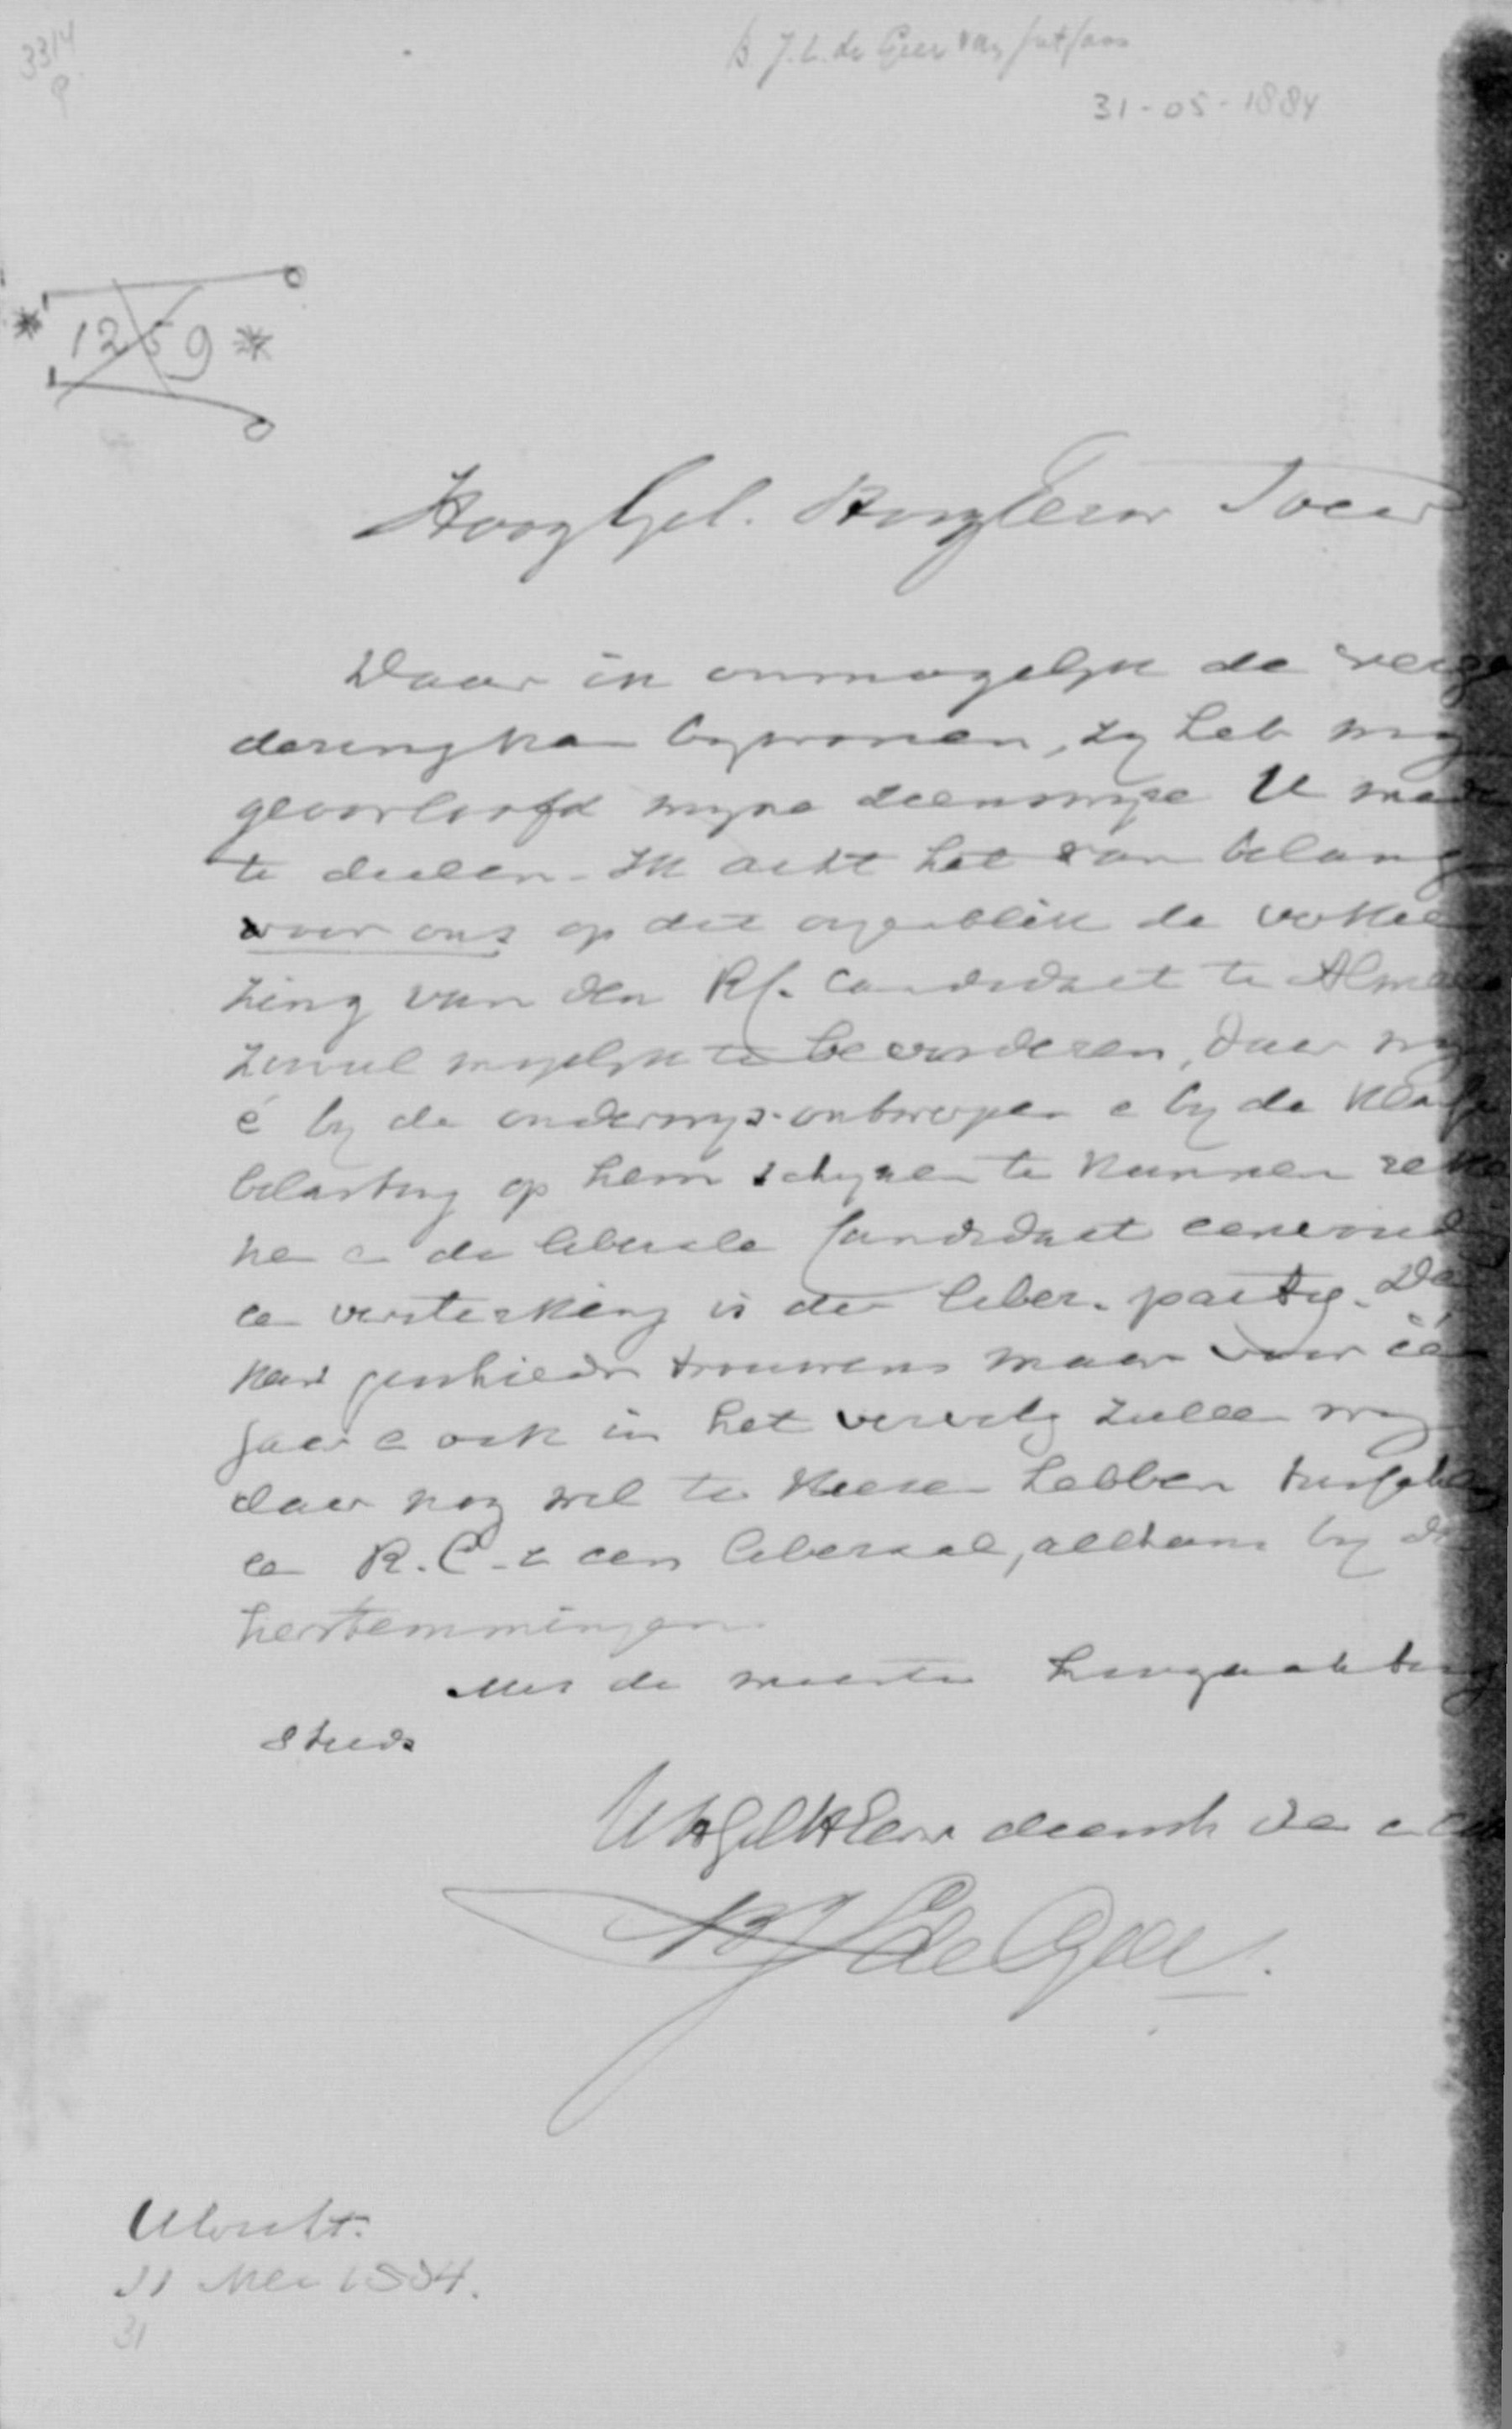 3314
B. J. L. de Geer van Jutfaas
31-05-1884
* 1259 *
HoogGel. HoogEerw
Daar ik onmogelijk de verga
dering kan bijwonen, zij het mij
geoorloofd mijne zienswijze U mede
te deelen. Ik acht het van belang
voor ons op dit oogenblik de verkie
zing van den RC. Candidaat te Almelo
zooveel mogelijk te bevorderen, daar wij
é bij de onderwijs-ontwerpen e bij de
belasting op hem schijnen te kunnen reke
nen e de liberale Candidaat eenvoudig
een versterking is der liber. partij. De
keus geschiedt trouwens maar voor één
jaar e ook in het vervolg zullen wij
daar nog wel te kiezen hebben tusschen
een R.C. e een liberaal, althans bij de
herstemmingen.
Met de meeste hoogachting
steeds
UHGelHEerw dienstw
BJLdeGeer.
Utrecht.
31 Mei 1884.
31